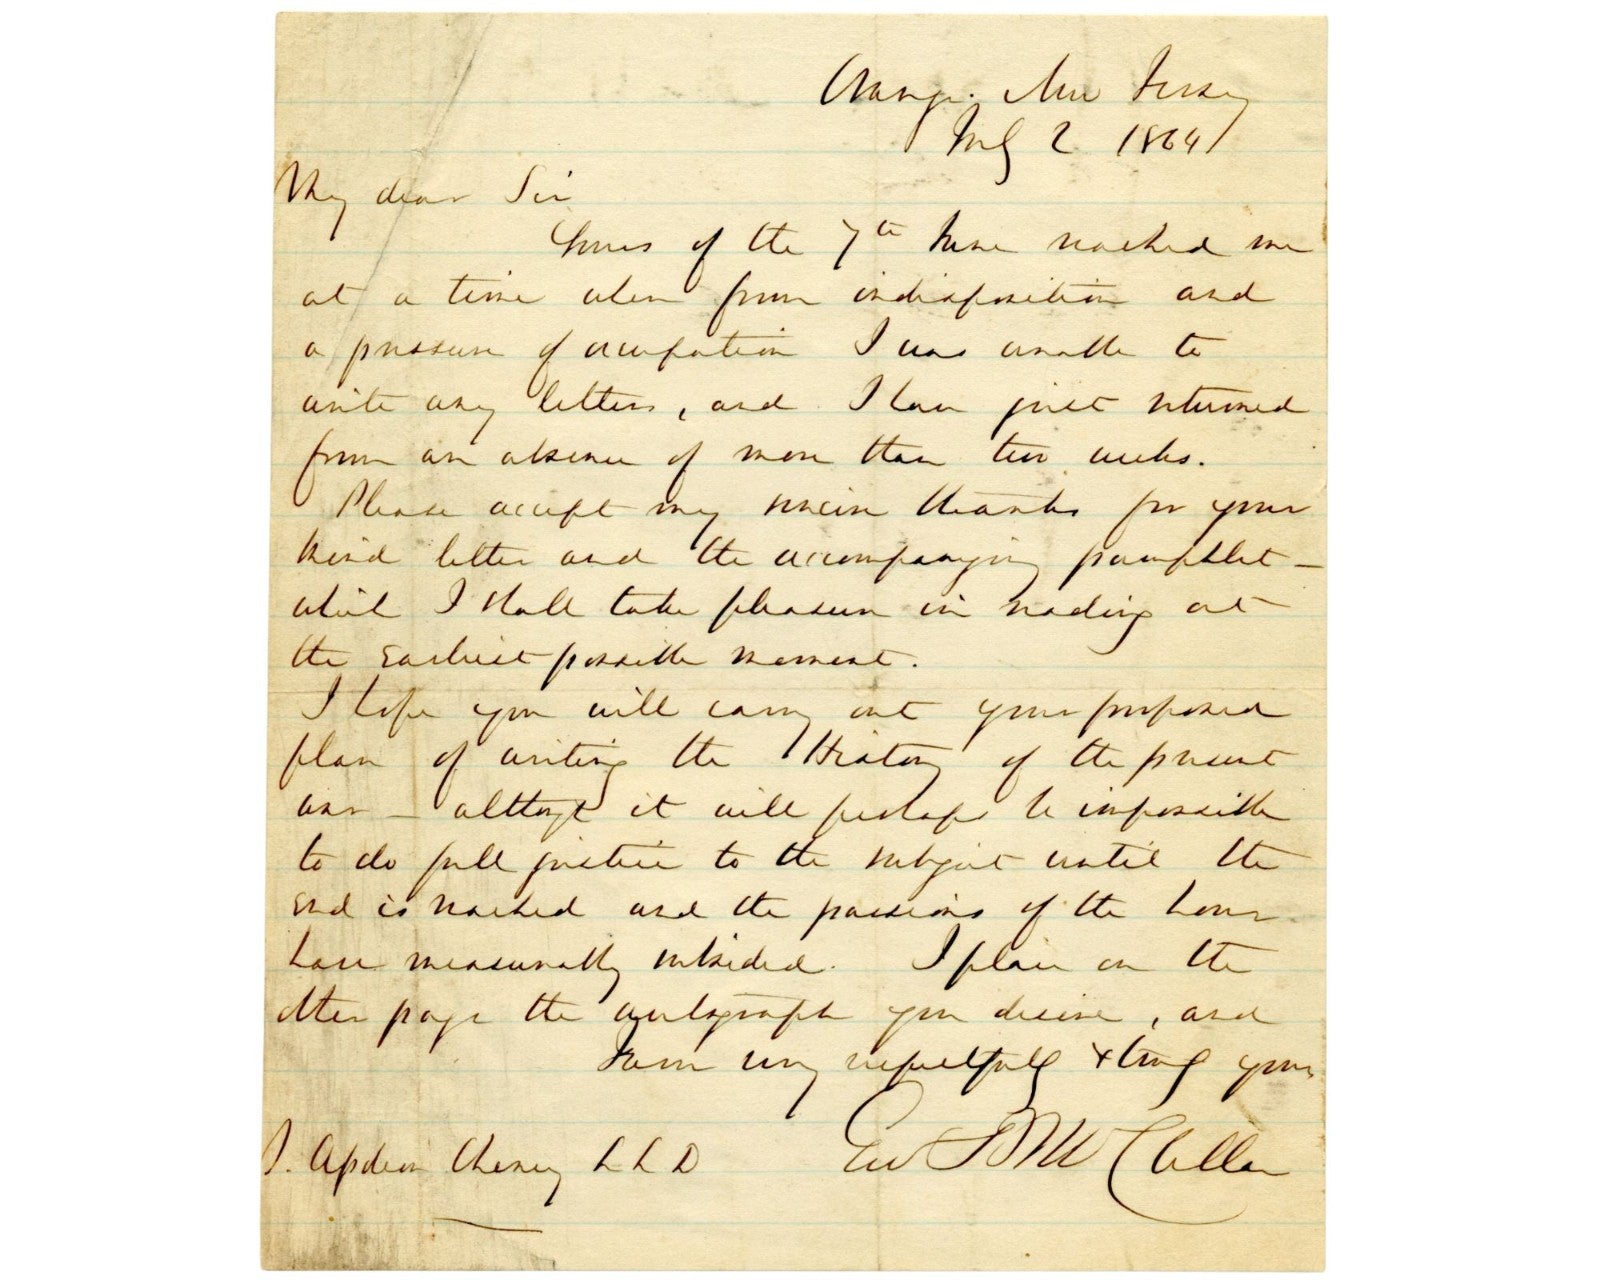 Orange, New Jersey
July 2 1864
My dear Sir
Yours of the 7th June reached me
at a time when from indisposition and
a pressure of occupation I was unable to
write any letters, and I have just returned
from an absence of more than two weeks.
Please accept my sincere thanks for your
kind letter and the accompanying pamphlet –
which I shall take pleasure in reading at
the earliest possible moment.
I hope you will carry out your proposed
plan of writing the History of the present
war – althogh it will perhaps be impossible
to do full justice to the subject until the
end is reached and the passions of the hour
have measurably subsided. I place on the
other page the autograph you desire, and
am very respectfully & truly yours
Geo B McClellan
Cheney L L D